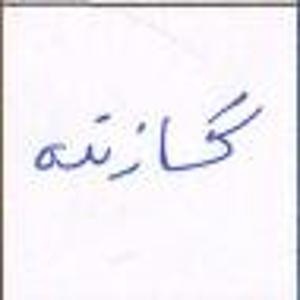 گازته